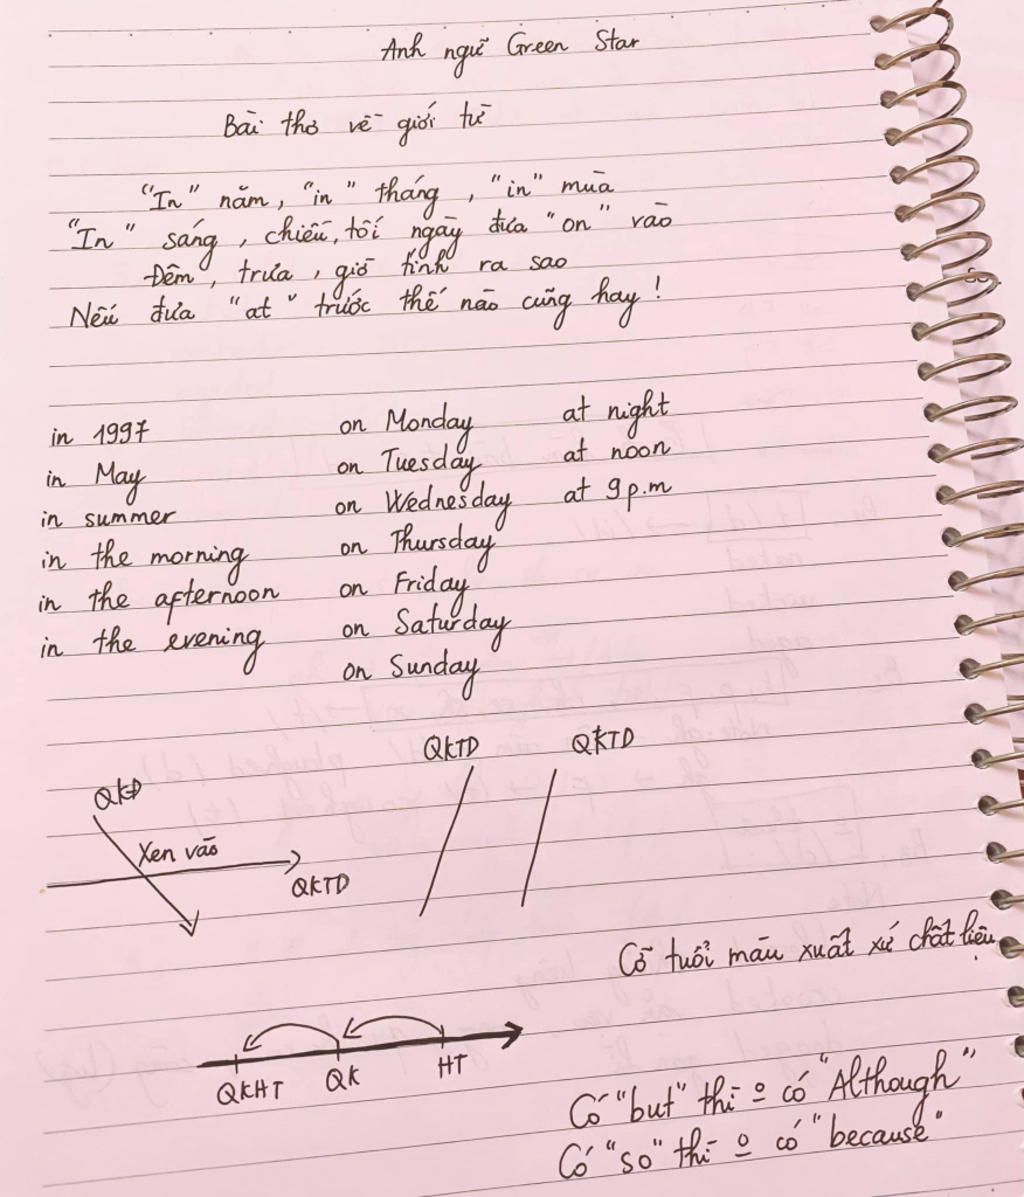 Anh ngữ Green Star
Bài thơ về giới từ
"In" năm, "in" tháng, "in" mùa
"In" sáng, chiều, tối ngày đưa "on" vào
Đêm, trưa, giờ tính ra sao
Nếu đưa "at" trước thế nào cũng hay!
in 1997 on Monday at night
in May on Tuesday at noon
in summer on Wednesday at 9p.m
in the morning on Thursday
in the afternoon on Friday
in the evening on Saturday
on Sunday
QKTD QKTD
QKĐ
Xen vào
QKTD
Cỡ tuổi màu xuất xứ chất liệu
QKHT QK HT
Có "but" thì º có "Although"
Có "so" thì º có "because"